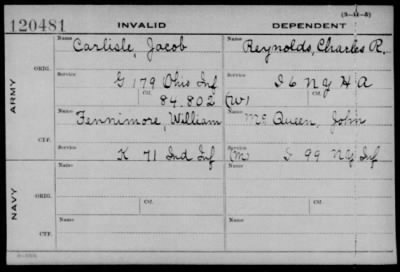 (3-11-5)
120481 INVALID DEPENDENT
Name Name
Carlisle, Jacob Reynolds, Charles R.
ARMY
ORIG.
Service Service
G 179 Ohio Inf D 6 N Y H A
Ctf. Ctf.
84.802 (W)
Name Name
Fennimore, William McQueen, John
CTF.
Service Service
K 71 Ind Inf (M) I 99 N Y Inf
NAVY
Name Name
ORIG.
Ctf. Ctf.
Name Name
CTF.